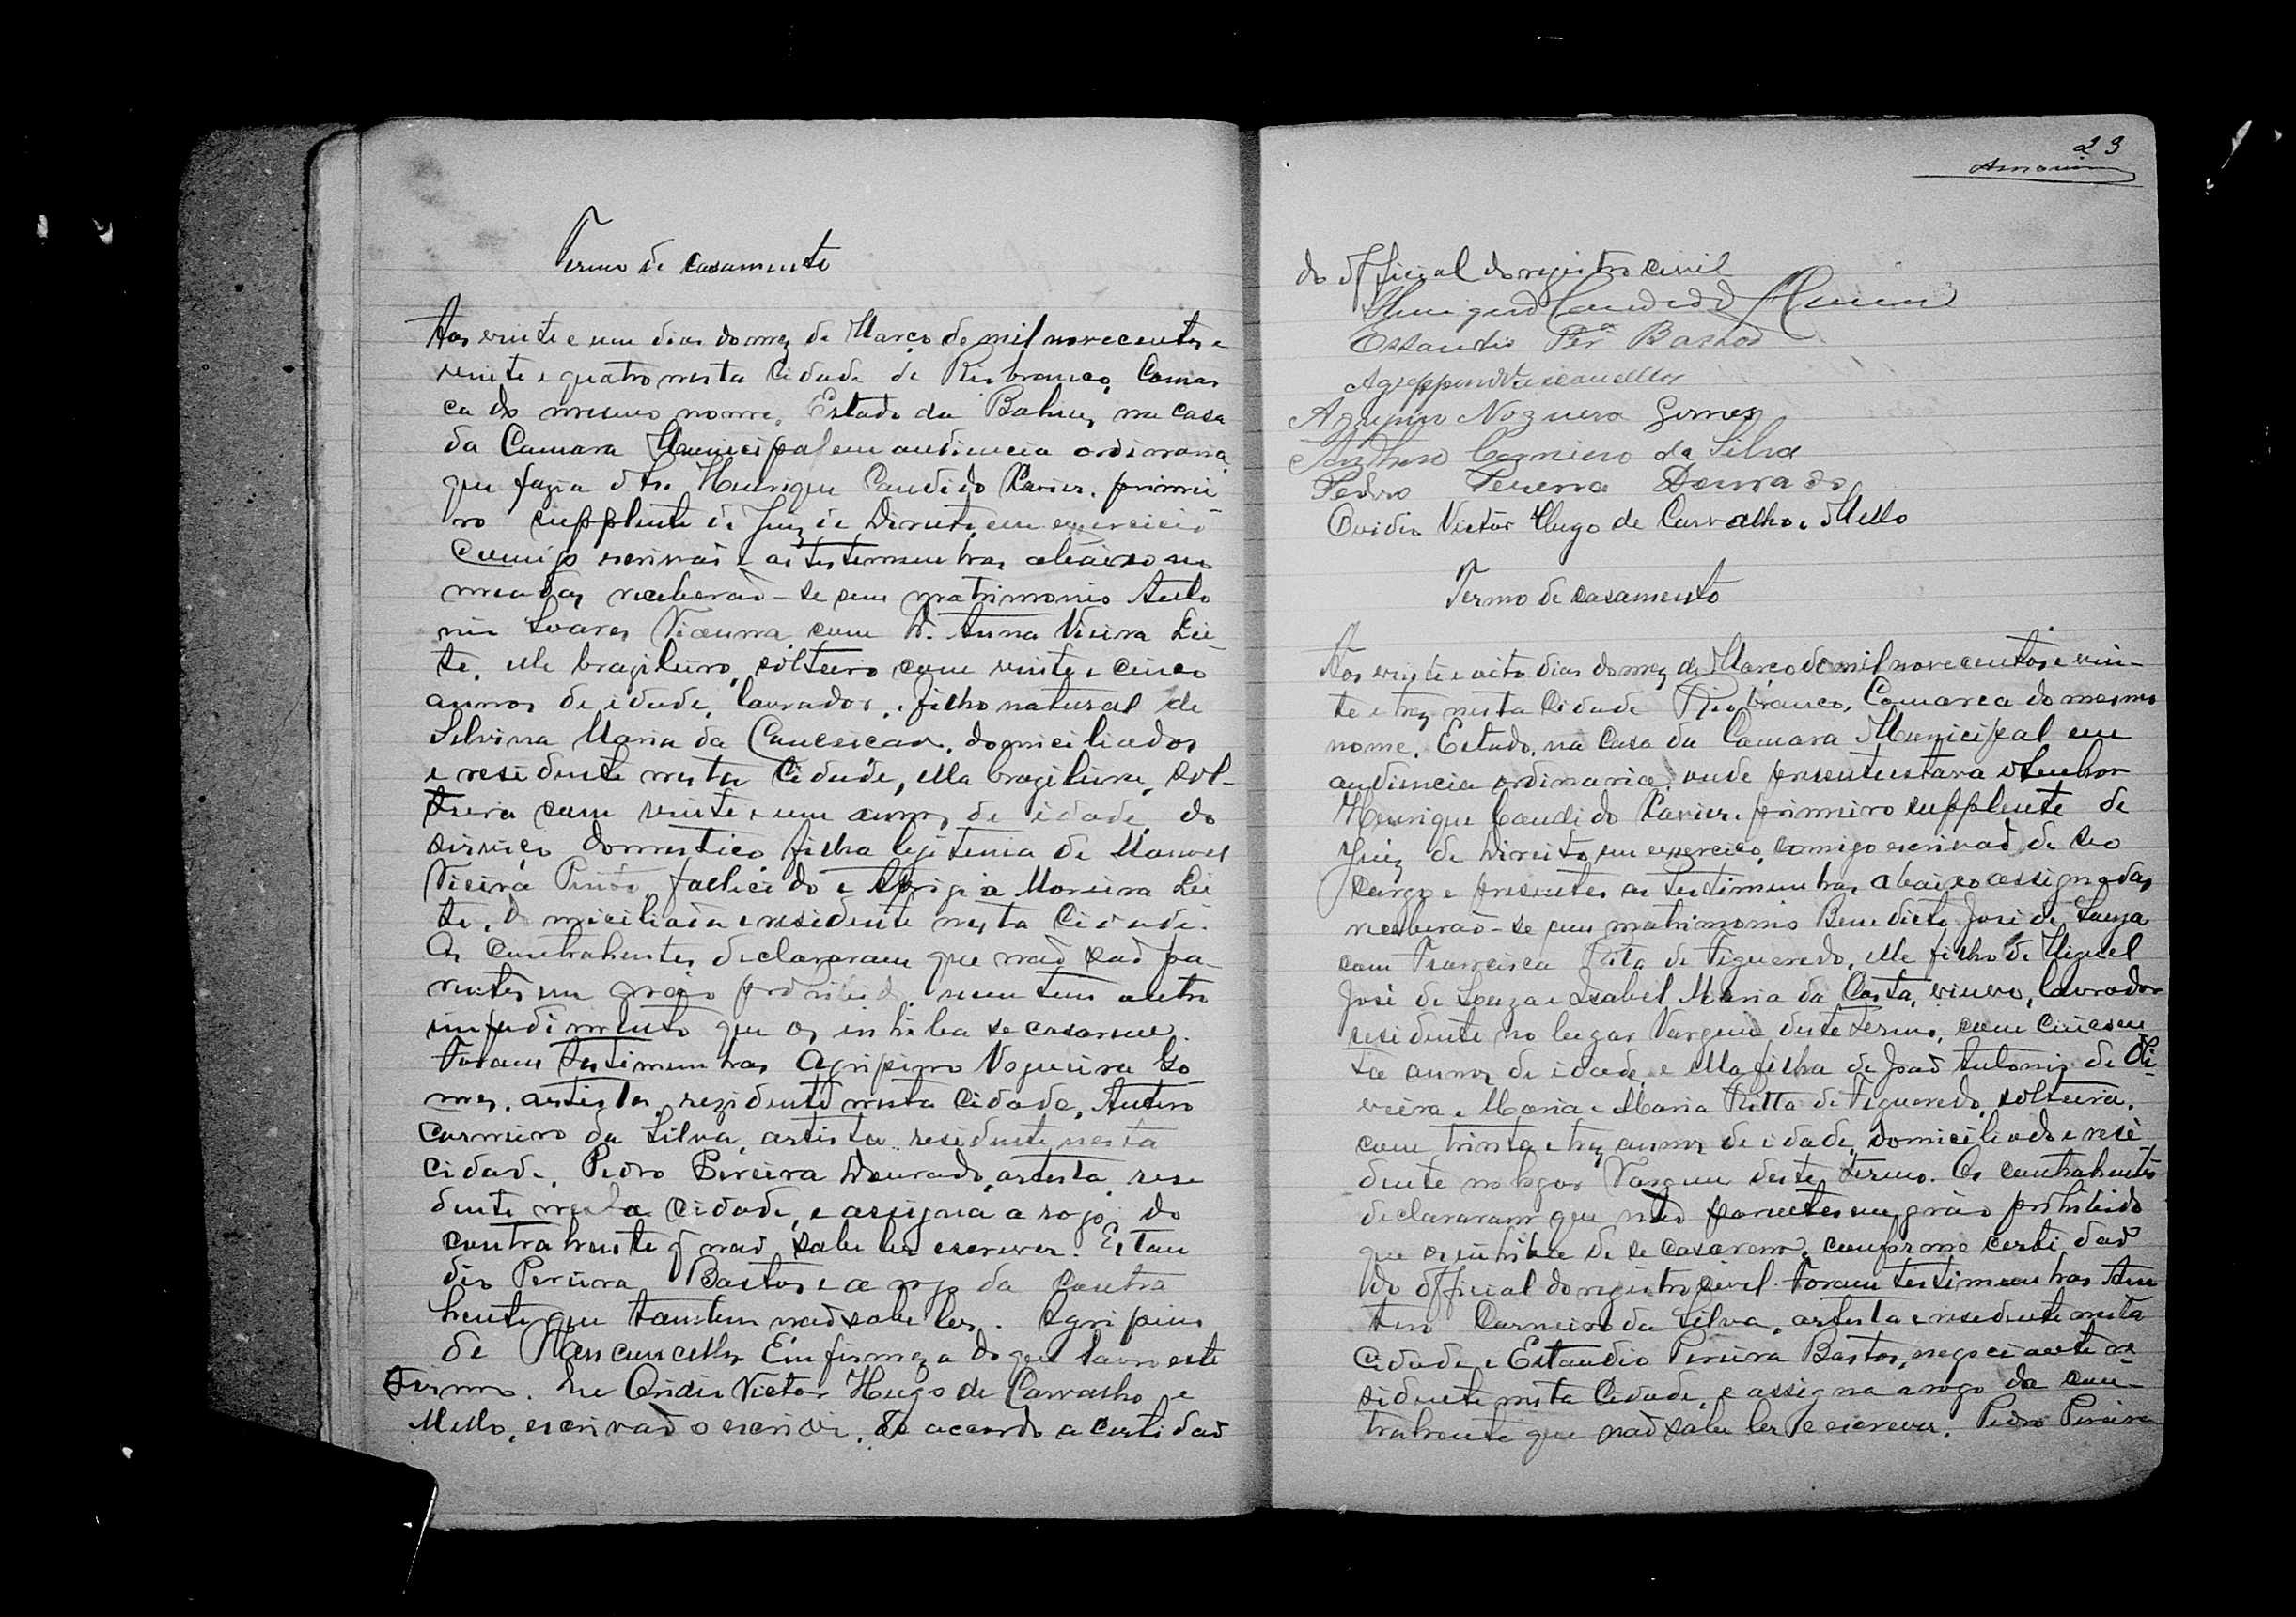 Termo de casamento
Aos vinte e um dias do mez de Março de mil novecentos e
vinte e quatro nesta Cidade de Rio branco, Comar
ca do mesmo nome, Estado da Bahia, na casa
da Camara Municipal em audiencia ordinaria
que fazia o Sr. Henrique Candido Xavier, primei
ro supplente de Juiz de Direito em exercicio
comigo escrivaõ e as testemunhas abaixo no
meadas receberaõ-se em matrimonio Anto
nio Soares Vianna com D. Anna Vieira Lei
te, elle brazileiro, solteiro com vinte e cinco
annos de idade, lavrador, filho natural de
Silvina Maria da Conceicaõ, domiciliados
e residente nesta Cidade, ella brazileira, sol-
teira com vinte e um annos de idade, do
serviço domestico, filha legitima de Manoel
Vieira Pinto, fallecido e Moreira Lei
te, domiciliada e residente nesta Cidade.
Os contrahentes declararam que naõ saõ pa
rentes em gráo prohibido, nem tem outro
impedimento que os inhiba se casarem.
Foram testimunhas Agripino Nogueira Go
mes, artista, rezidente nesta Cidade, Antero
Carneiro da Silva, artista residente nesta
cidade, Pedro Pereira Dourado, artista resi
dente nesta Cidade, e assigna a rogo do
contrahente q naõ sabe ler escrever. Estan
dio Pereira Bastos e a rogo da contra
hente que tambem naõ sabe ler. Agripino
de Vasconcellos Em firmeza do que lavro este
termo. Eu Ovidio Victor Hugo de Carvalho e
Mello, escrivaõ o escrivi. De accordo a certidaõ
23
do official do registro civil
Henrique Candido Xavier
Estandio Perª Bastos
Agrippino Vasconcellos
Agripino Noguera Gomes
Anthero Carneiro da Silva
Pedro Pereira Dourado
Ovidio Victor Hugo de Carvalho e Mello
Termo de casamento
Aos vinte e oito dias do mez de Março de mil novecentos e vin-
te e trez nesta Cidade Rio branco, Comarca do mesmo
nome, Estado, na Casa da Camara Municipal em
audiencia ordinaria, onde presente estava o Senhor
Henrique Candido Xavier, primeiro supplente de
Juiz de Direito em exercicio, comigo escrivaõ de seo
cargo e presentes as testimunhas abaixo assignadas
receberaõ-se em matrimonio Benedicto José de Souza
com Francisca Rita de Figueredo, elle filho de Miguel
José de Souza e Izabel Maria da Costa, viuvo, lavrador
residente no lugar Vargem deste termo, com cincoen
ta annos de idade, e ella filha de Joaõ Antonio de Oli-
veira e Maria e Maria Ritta de Figueredo, solteira,
com trinta e trez annos de idade, domiciliado e resi
dente no logar Vargem deste termo. Os contrahentes
declararam que naõ parentes em gráo prohibido
que os inhiba de se casarem, conforme certidaõ
do official do registro civil. Foram testimunhas An
tero Carneiro da Silva, artista e residente nesta
Cidade e Estandio Pereira Bastos, negociante re
sidente nesta Cidade, e assigna a rogo da con-
trahente que naõ sabe ler e escrever. Pedro Pereira